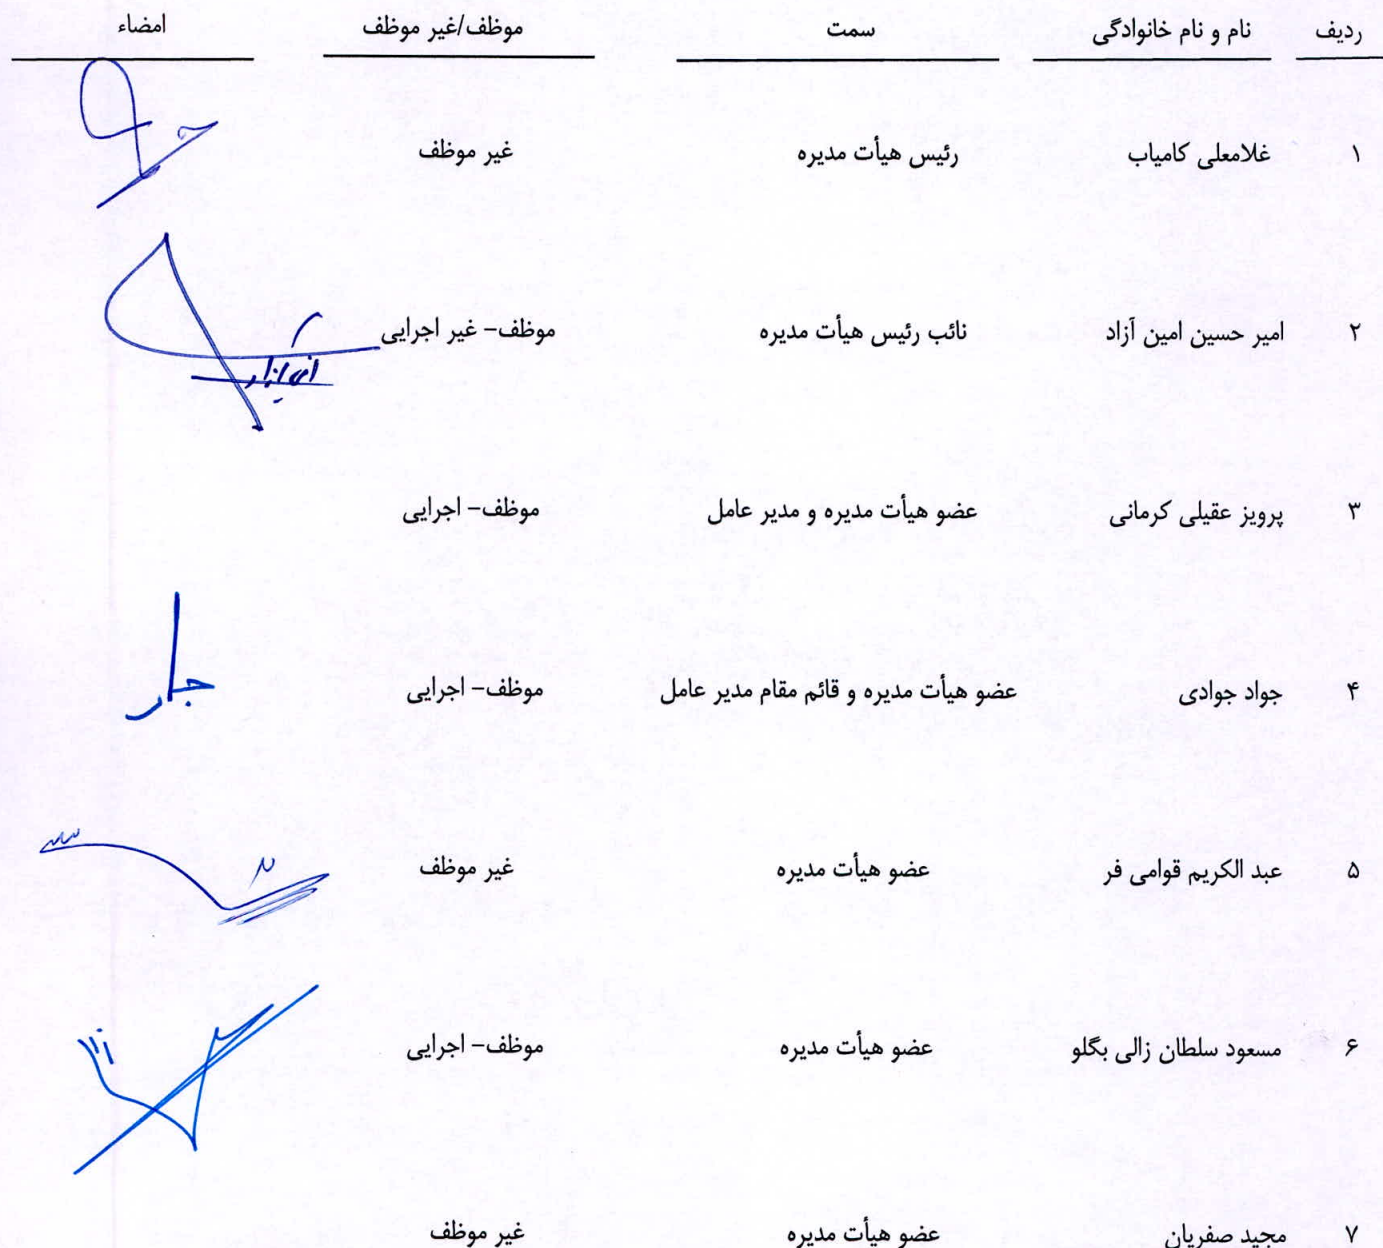 ردیف نام و نام خانوادگی سمت موظف/غیر موظف امضاء
۱ غلامعلی کامیاب رئیس هیأت مدیره غیر موظف
۲ امیر حسین امین آزاد نائب رئیس هیأت مدیره موظف- غیر اجرایی
۳ پرویز عقیلی کرمانی عضو هیأت مدیره و مدیر عامل موظف- اجرایی
۴ جواد جوادی عضو هیأت مدیره و قائم مقام مدیر عامل موظف- اجرایی
۵ عبد الکریم قوامی فر عضو هیأت مدیره غیر موظف
۶ مسعود سلطان زالی بگلو عضو هیأت مدیره موظف- اجرایی
۷ مجید صفریان عضو هیأت مدیره غیر موظف